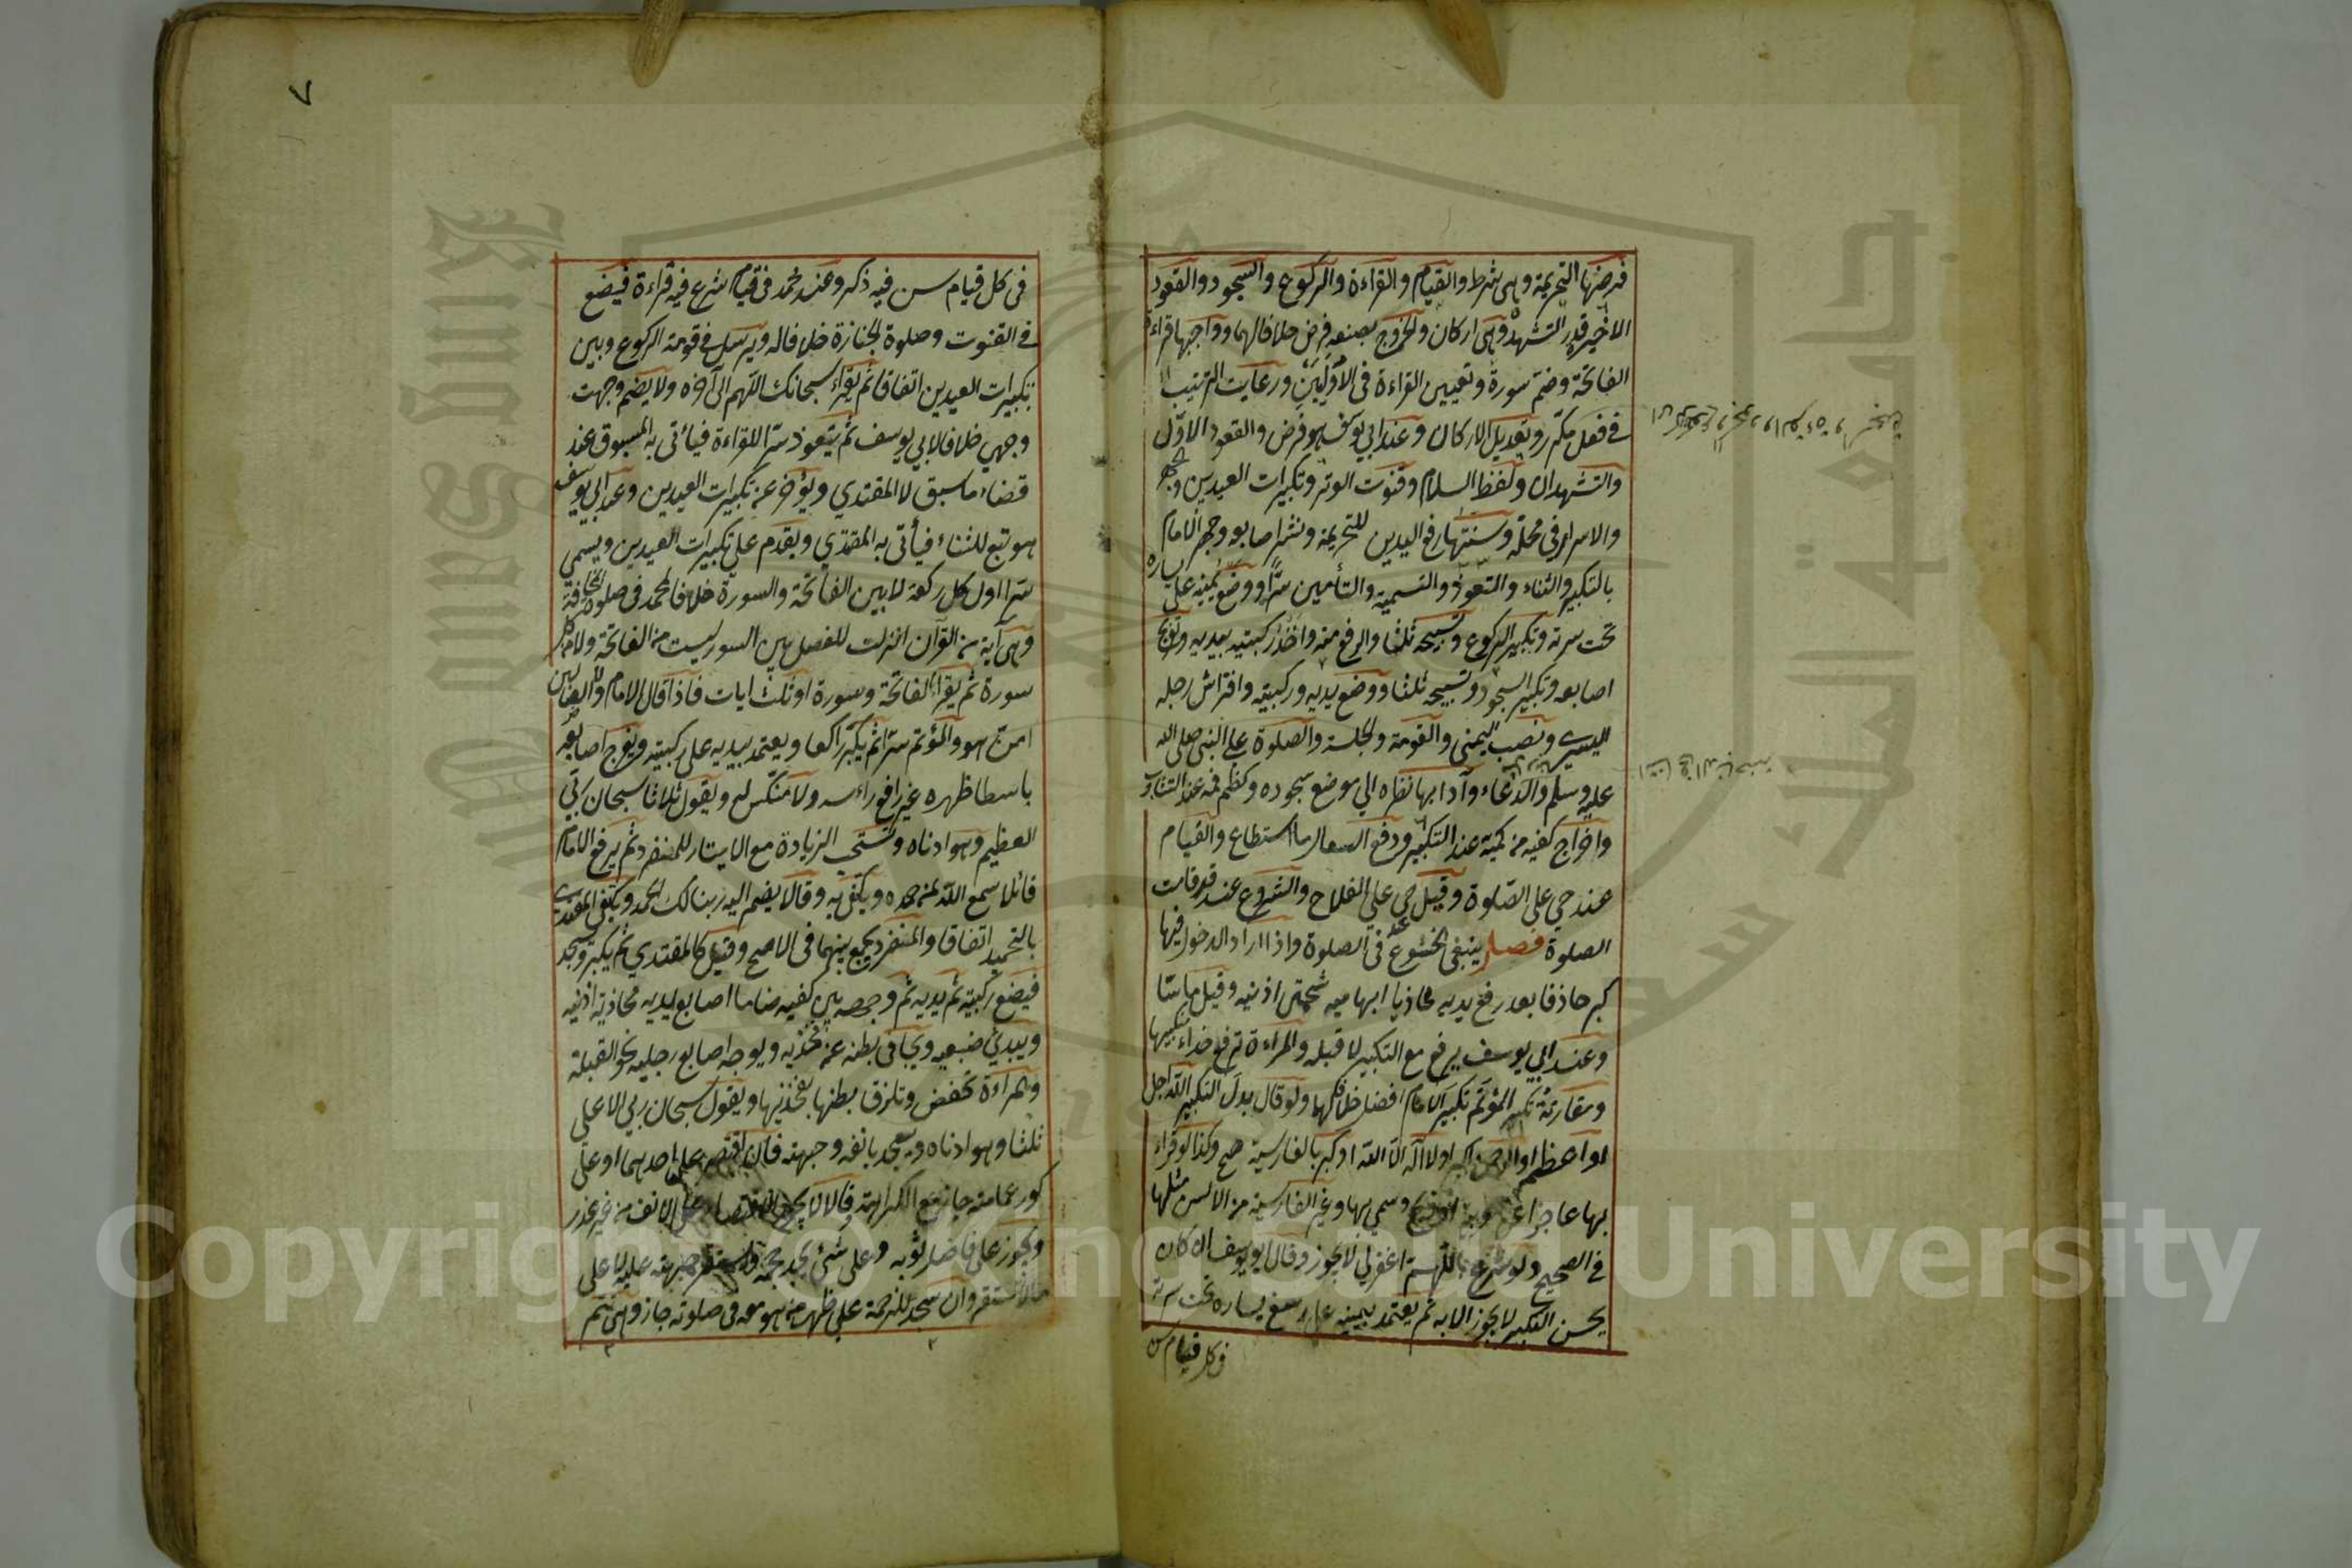 فرضها التحريمة وهى شرط والقيام والقراءة والركوع والسجود والقعود
الاخير قدر التشهد وهى اركان والخروج بصنعه فرض خلافا لهما وواجبها قراءة
الفاتحة وضم سورة وتعيين القراءة فى الاوليين ورعايت الترتيب
فى فعل مكرر وتعديل الاركان وعند ابي يوسف هو فرض والقعود الاوّل
والتشهدان ولفظ السلام وقنوت الوتر وتكبيرات العيدين والجهر
والاسرار فى محله وسننها رفع اليدين للتحريمة ونشر اصابعه وجهر الامام
بالتكبير والثناء والتعوذ والتسمية والتأمين سرّا ووضع يمينه على يساره
تحت سرته وتكبير الركوع وتسبيحه ثلثا والرفع منه واخذ ركبتيه بيديه وتفريج
اصابعه وتكبير السجود وتسبيحه ثلثا ووضع يديه وركبتيه وافتراش رجله
اليسرى ونصب اليمنى والقومة والجلسة والصلوة على النبى صلى الله
عليه وسلم والدعاء وآدابها نظره الي موضع سجوده وكظم فمه عند التثاؤب
واخراج كفيه من كميه عند التكبير ودفع السعال ما استطاع والقيام
عند حي على الصلوة وقيل حي على الفلاح والشروع عند قد قامت
الصلوة فصل ينبغى الخشوع فى الصلوة واذا اراد الدخول فيها
كبر حاذفا بعد رفع يديه محاذيا ابهاميه شحمتى اذنيه وقيل ماسّا
وعند ابي يوسف يرفع مع التكبير لا قبله والمراءة ترفع حذاء منكبيها
ومقارنة تكبير المؤتم تكبير الامام افضل خلافا لهما ولو قال بدل التكبير الله اجل
او اعظم او الرحمن اكبر او لا اله الا الله او كبر بالفارسية صح وكذا لو قراء
بها عاجزا عن العربية او ذبح وسمي بها وغير الفارسية من الالسن مثلها
فى الصحيح ولو شرع باللهم اغفرلي لا يجوز وقال ابو يوسف ان كان
يحسن التكبير لا يجوز الا به ثم يعتمد بيمينه على رسغ يساره تحت سرته
فى كل قيام سن
٧
فى كل قيام سن فيه ذكر وعند محمد فى قيام شرع فيه قراءة فيضع
فى القنوت وصلوة الجنازة خلافا له ويرسل فى قومة الركوع وبين
تكبيرات العيدين اتفاقا ثم يقراء سبحانك اللهم الى آخره ولا يضم وجهت
وجهي خلافا لابي يوسف ثم يتعوذ سرّا للقراءة فيأتى به المسبوق عند
قضاء ما سبق لا المقتدي ويؤخر عن تكبيرات العيدين وعند ابي يوسف
هو تبع للثناء فيأتى به المقتدي ويقدم على تكبيرات العيدين ويسمي
سرّا اول كل ركعة لا بين الفاتحة والسورة خلافا لمحمد فى صلوة المخافتة
وهى آية من القرآن انزلت للفصل بين السور ليست من الفاتحة ولا من كل
سورة ثم يقراء الفاتحة وسورة او ثلث ايات فاذا قال الامام ولا الضالين
امن هو والمؤتم سرّا ثم يكبّر راكعا ويعتمد بيديه على ركبتيه ويفرج اصابعه
باسطا ظهره غير رافع راءسه ولا منكّس له ويقول ثلاثا سبحان ربّي
العظيم وهو ادناه وتستحب الزيادة مع الايتار للمنفرد ثم يرفع الامام
قائلا سمع الله لمن حمده ويكتفى به وقالا يضم اليه ربنا لك الحمد ويكتفى المقتدى
بالتحميد اتفاقا والمنفرد يجمع بينهما فى الاصح وقيل كالمقتدي ثم يكبر ويسجد
فيضع ركبتيه ثم يديه ثم وجهه بين كفيه ضاما اصابع يديه محاذية اذنيه
ويبدي ضبعيه ويجافى بطنه عن فخذيه ويوجه اصابع رجليه نحو القبلة
والمراءة تخفض وتلزق بطنها بفخذيها ويقول سبحان ربي الاعلى
ثلثا وهو ادناه ويسجد بانفه وجبهته فان اقتصر على احدهما او على
كور عمامته جاز مع الكراهة وقالا لا يجوز الاقتصار على الانف من غير عذر
ويجوز على فاضل ثوبه وعلى شئ يجد حجمه وتستقر جبهته عليه لا على
ما لا تستقر وان سجد للزحمة على ظهر من هو معه فى صلوته جاز وهى تتم
Copyright © King Saud University
King Saud University
جامعة الملك سعود